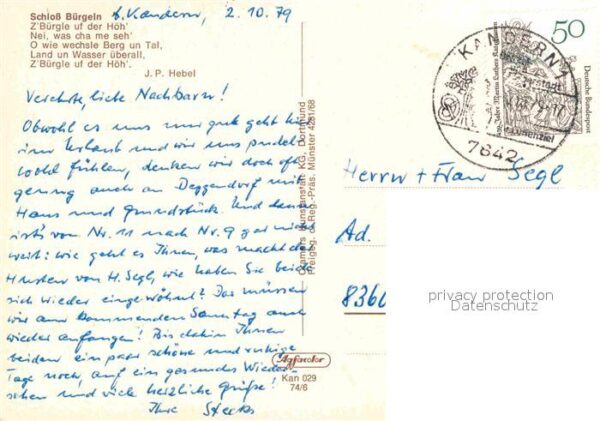 Schloß Bürgeln b. Kandern, 2.10.79
Z'Bürgle uf der Höh'
Nei, was cha me seh'
O wie wechsle Berg un Tal,
Land un Wasser überall,
Z'Bürgle uf der Höh'.
J. P. Hebel
Verehrte, liebe Nachbarn!
Obwohl es uns nur gut geht hier
im Urlaub und wir uns pudel-
wohl fühlen, denken wir doch oft
genug auch an Deggendorf mit
Haus und Grundstück. Und dann
ist's von Nr. 11 nach Nr. 9 gar nicht
weit: wie geht es Ihnen, was macht der
Husten von H. Segl, wie haben Sie beide
sich wieder eingewöhnt? Das müssen
wir am kommenden Sonntag auch
wieder anfangen! Bis dahin Ihnen
beiden ein paar schöne und ruhige
Tage noch, auf ein gesundes Wieder-
sehen und viele herzliche Grüße!
Ihre
Cramers Kunstanstalt KG, Dortmund
Freigeg. d. Reg.-Präs. Münster 4281/68
Agfacolor
Kan 029
74/6
50
Deutsche Bundespost
KANDERN 1
7842
Herrn + Frau Segl
Ad.
8360
privacy protection
Datenschutz